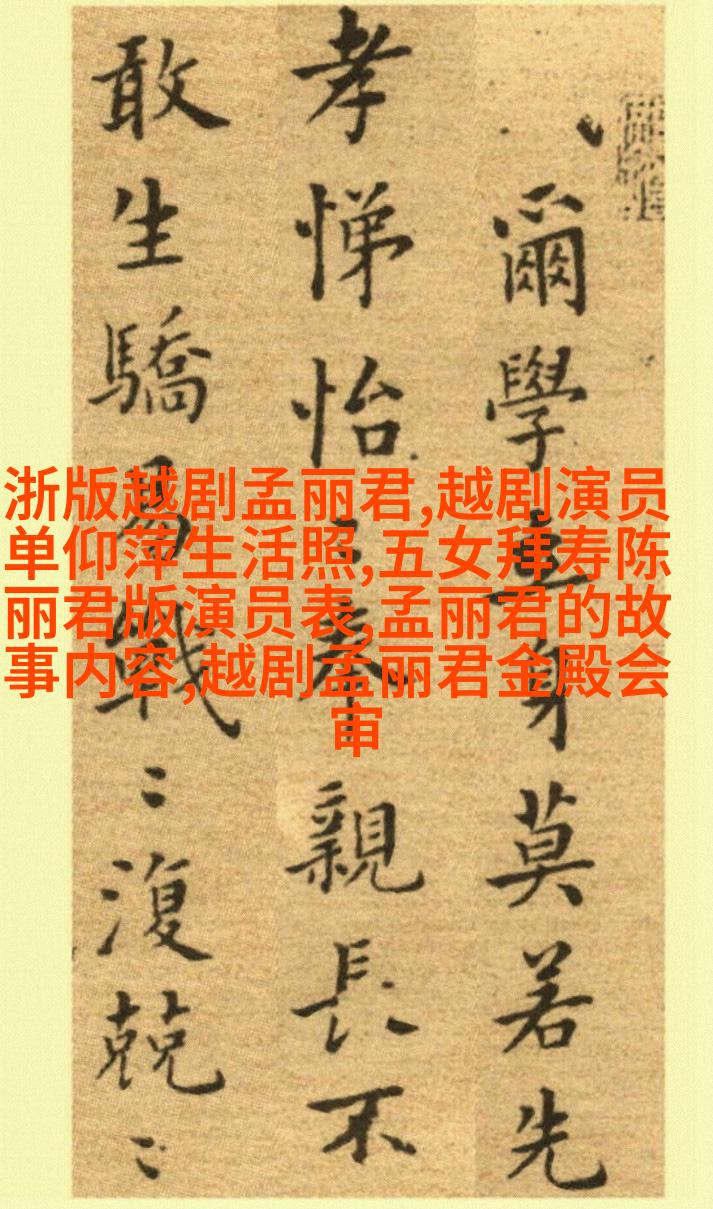 爾學立身莫若先
孝悌怡〻奉親長不
敢生驕易戰〻復兢〻
浙版越剧孟丽君,越剧演员
单仰萍生活照,五女拜寿陈
丽君版演员表,孟丽君的故
事内容,越剧孟丽君金殿会
审